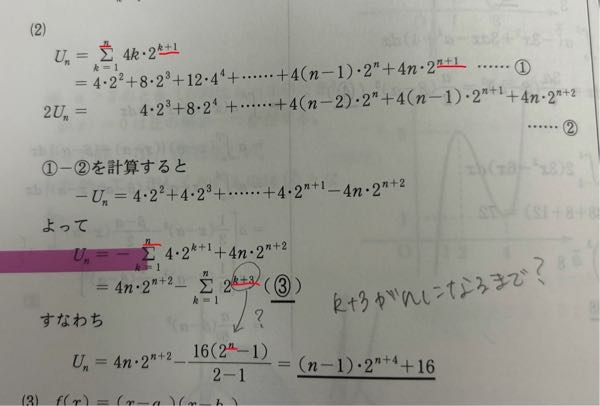 (2)
Uₙ = Σ[k=1→n] 4k・2^{k+1}
= 4・2²+8・2³+12・4⁴+……+4(n−1)・2ⁿ+4n・2^{n+1} ……①
2Uₙ = 4・2³+8・2⁴ +……+4(n−2)・2ⁿ+4(n−1)・2^{n+1}+4n・2^{n+2}
……②
①−②を計算すると
−Uₙ = 4・2²+4・2³+……+4・2^{n+1}−4n・2^{n+2}
よって
Uₙ = −Σ[k=1→n] 4・2^{k+1}+4n・2^{n+2}
= 4n・2^{n+2}−Σ[k=1→n] 2^{k+3} (③)
k+3がnになるまで?
?
すなわち
Uₙ = 4n・2^{n+2}− 16(2ⁿ−1)/(2−1) = (n−1)・2^{n+4}+16